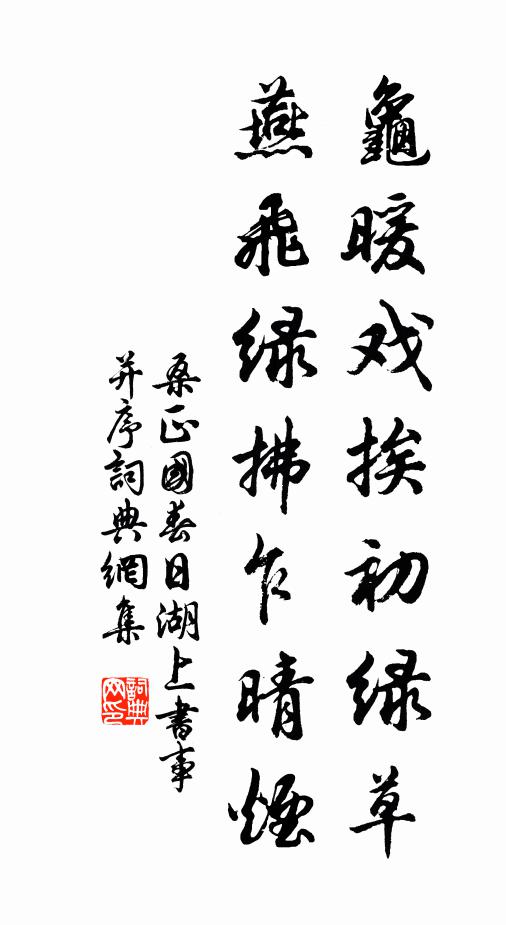 龜暖戏挨初绿草
燕飛绿拂乍晴煙
桑正國春日湖上書事
并序詞典網集
詞典网印